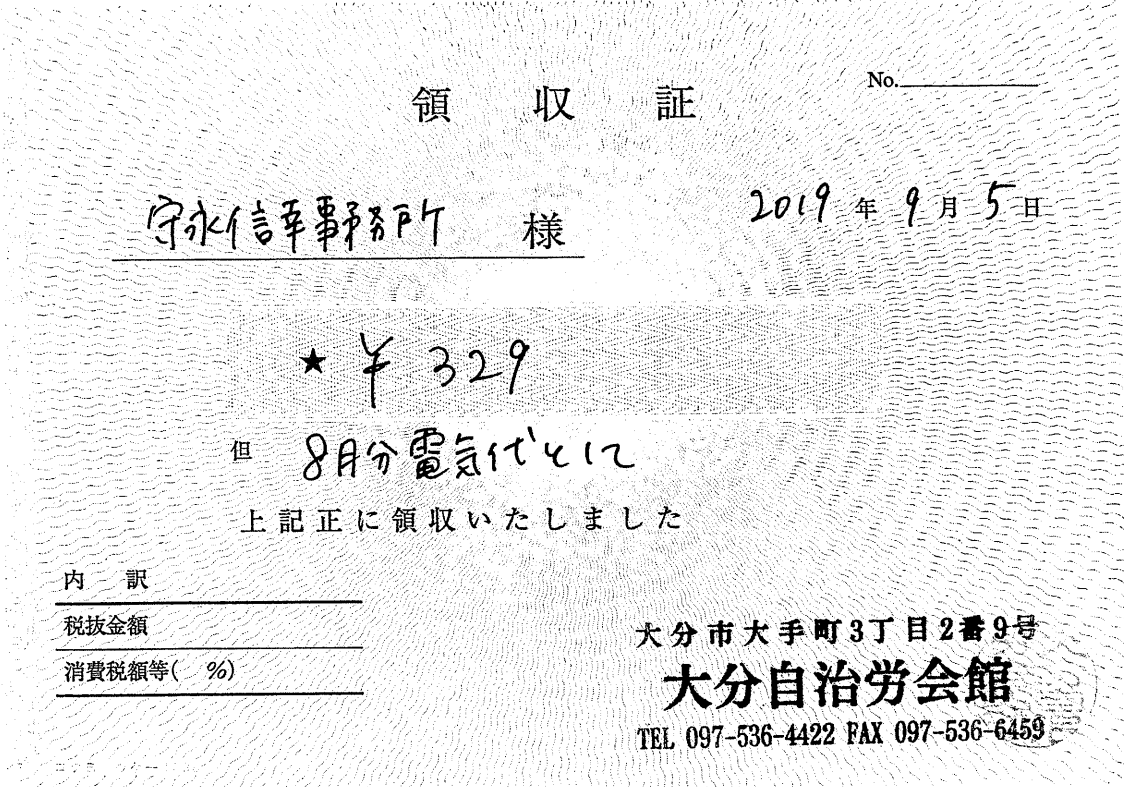 No.
領収証
守永信幸事務所 様
2019年9月5日
★ ¥329
但 8月分電気代として
上記正に領収いたしました
内訳
税抜金額
消費税額等( %)
大分市大手町3丁目2番9号
大分自治労会館
TEL 097-536-4422 FAX 097-536-6459